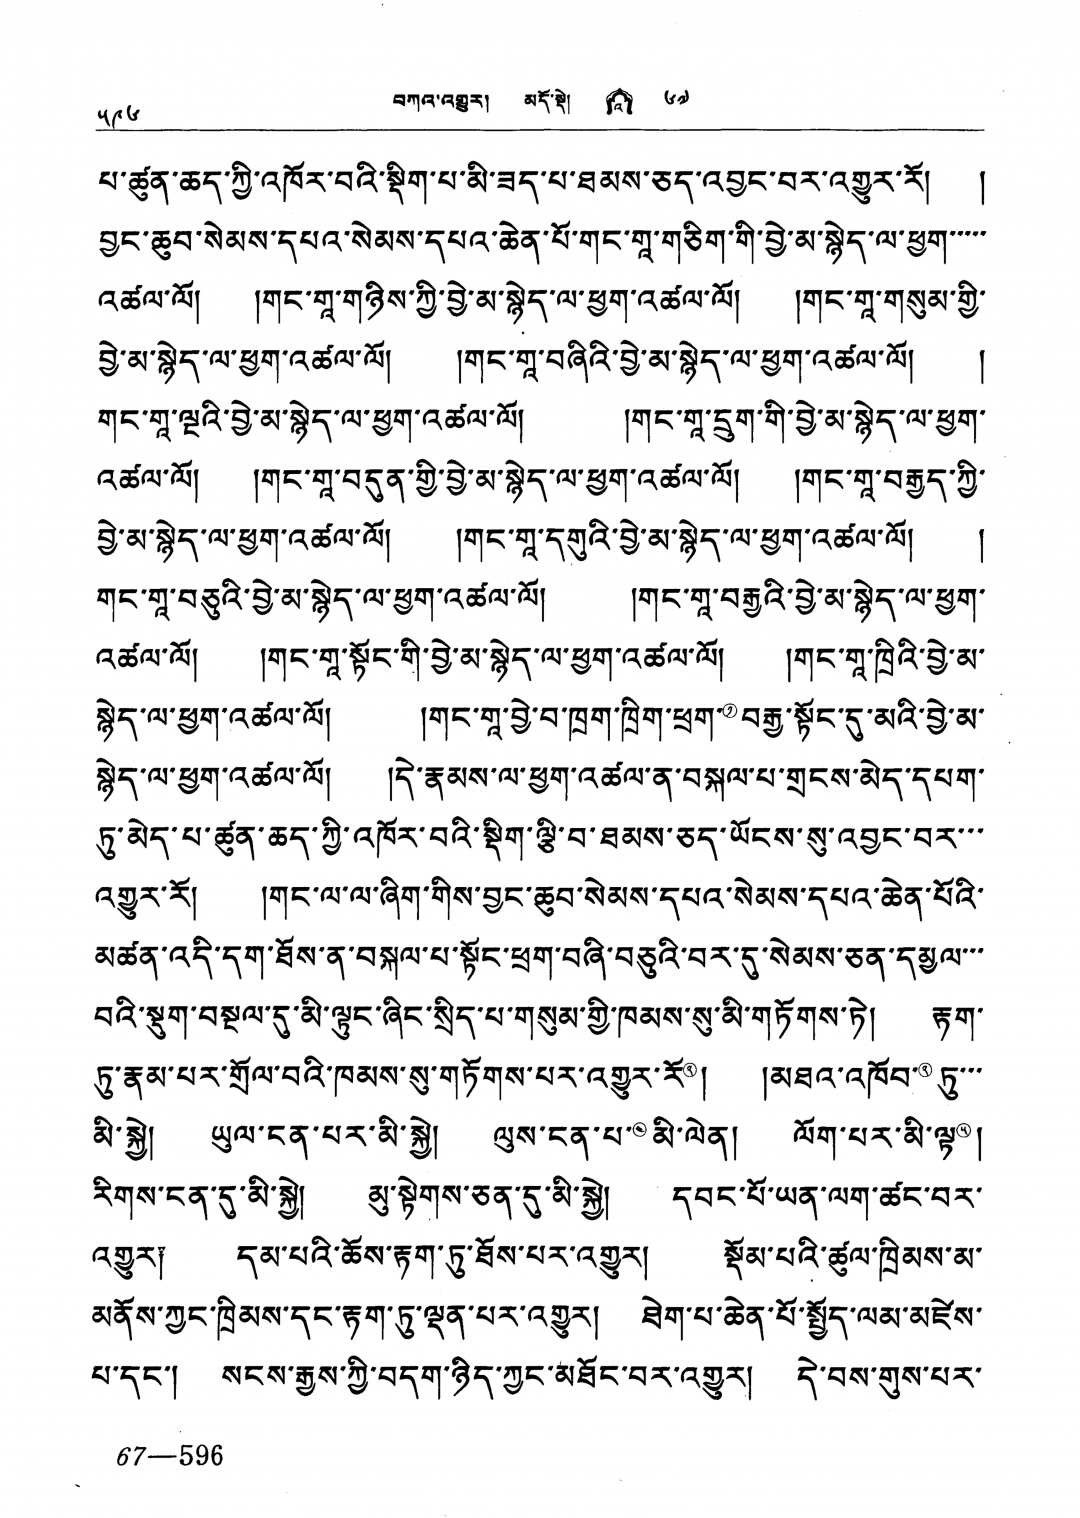 ༥༩༦ བཀའ་འགྱུར། མདོ་སྡེ། ༦༧
པ་ཚུན་ཆད་ཀྱི་འཁོར་བའི་སྡིག་པ་མི་ཟད་པ་ཐམས་ཅད་འབྱང་བར་འགྱུར་རོ། །
བྱང་ཆུབ་སེམས་དཔའ་སེམས་དཔའ་ཆེན་པོ་གང་གཱ་གཅིག་གི་བྱེ་མ་སྙེད་ལ་ཕྱག་་་་་
འཚལ་ལོ། །གང་གཱ་གཉིས་ཀྱི་བྱེ་མ་སྙེད་ལ་ཕྱག་འཚལ་ལོ། །གང་གཱ་གསུམ་གྱི་
བྱེ་མ་སྙེད་ལ་ཕྱག་འཚལ་ལོ། །གང་གཱ་བཞིའི་བྱེ་མ་སྙེད་ལ་ཕྱག་འཚལ་ལོ། །
གང་གཱ་ལྔའི་བྱེ་མ་སྙེད་ལ་ཕྱག་འཚལ་ལོ། །གང་གཱ་དྲུག་གི་བྱེ་མ་སྙེད་ལ་ཕྱག་
འཚལ་ལོ། །གང་གཱ་བདུན་གྱི་བྱེ་མ་སྙེད་ལ་ཕྱག་འཚལ་ལོ། །གང་གཱ་བརྒྱད་ཀྱི་
བྱེ་མ་སྙེད་ལ་ཕྱག་འཚལ་ལོ། །གང་གཱ་དགུའི་བྱེ་མ་སྙེད་ལ་ཕྱག་འཚལ་ལོ། །
གང་གཱ་བཅུའི་བྱེ་མ་སྙེད་ལ་ཕྱག་འཚལ་ལོ། །གང་གཱ་བརྒྱའི་བྱེ་མ་སྙེད་ལ་ཕྱག་
འཚལ་ལོ། །གང་གཱ་སྟོང་གི་བྱེ་མ་སྙེད་ལ་ཕྱག་འཚལ་ལོ། །གང་གཱ་ཁྲིའི་བྱེ་མ་
སྙེད་ལ་ཕྱག་འཚལ་ལོ། །གང་གཱ་བྱེ་བ་ཁྲག་ཁྲིག་ཕྲག་①བརྒྱ་སྟོང་དུ་མའི་བྱེ་མ་
སྙེད་ལ་ཕྱག་འཚལ་ལོ། །དེ་རྣམས་ལ་ཕྱག་འཚལ་ན་བསྐལ་པ་གྲངས་མེད་དཔག་
ཏུ་མེད་པ་ཚུན་ཆད་ཀྱི་འཁོར་བའི་སྡིག་ལྕི་བ་ཐམས་ཅད་ཡོངས་སུ་འབྱང་བར་་་
འགྱུར་རོ། །གང་ལ་ལ་ཞིག་གིས་བྱང་ཆུབ་སེམས་དཔའ་སེམས་དཔའ་ཆེན་པོའི་
མཚན་འདི་དག་ཐོས་ན་བསྐལ་པ་སྟོང་ཕྲག་བཞི་བཅུའི་བར་དུ་སེམས་ཅན་དམྱལ་་་
བའི་སྡུག་བསྔལ་དུ་མི་ལྟུང་ཞིང་སྲིད་པ་གསུམ་གྱི་ཁམས་སུ་མི་གཏོགས་ཏེ། རྟག་
ཏུ་རྣམ་པར་གྲོལ་བའི་ཁམས་སུ་གཏོགས་པར་འགྱུར་རོ②། །མཐའ་འཁོབ་③ཏུ་་་
མི་སྐྱེ། ཡུལ་ངན་པར་མི་སྐྱེ། ལུས་ངན་པ་④མི་ལེན། ལོག་པར་མི་ལྟ⑤།
རིགས་ངན་དུ་མི་སྐྱེ། མུ་སྟེགས་ཅན་དུ་མི་སྐྱེ། དབང་པོ་ཡན་ལག་ཚང་བར་
འགྱུར། དམ་པའི་ཆོས་རྟག་ཏུ་ཐོས་པར་འགྱུར། སྡོམ་པའི་ཚུལ་ཁྲིམས་མ་
མནོས་ཀྱང་ཁྲིམས་དང་རྟག་ཏུ་ལྡན་པར་འགྱུར། ཐེག་པ་ཆེན་པོ་སྤྱོད་ལམ་མཛེས་
པ་དང་། སངས་རྒྱས་ཀྱི་བདག་ཉིད་ཀྱང་མཐོང་བར་འགྱུར། དེ་བས་གུས་པར་
67—596